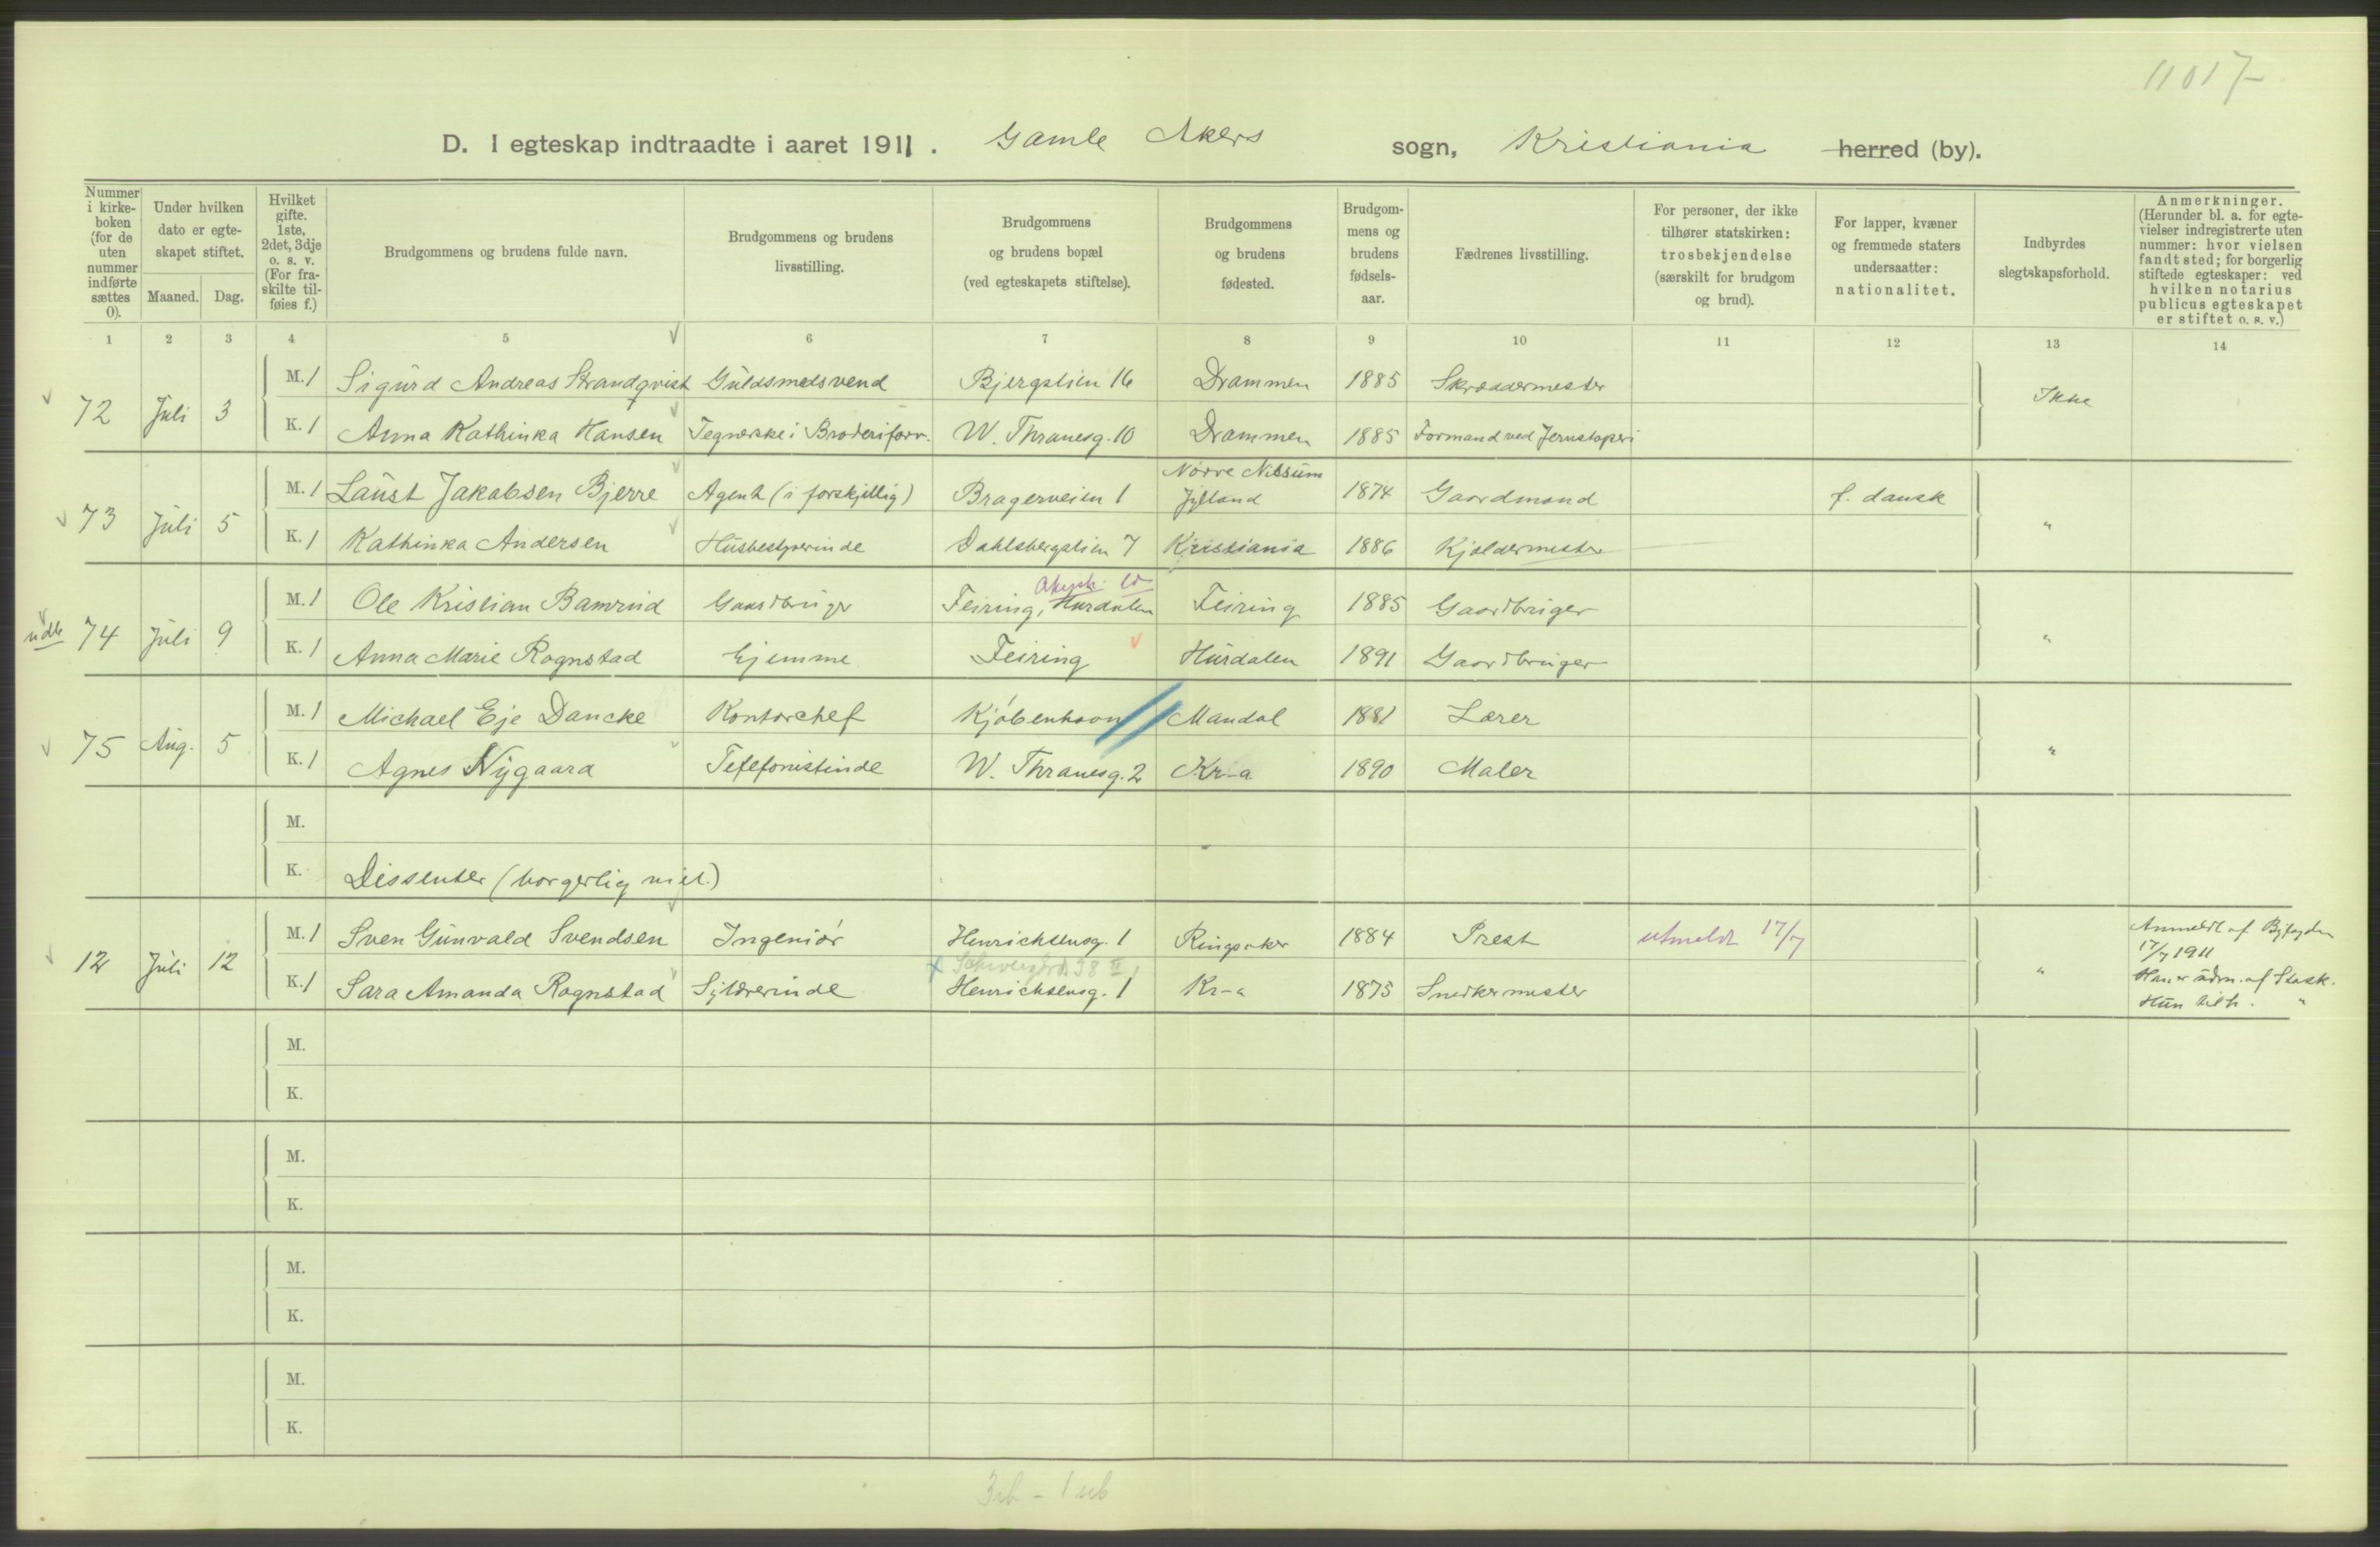 11017
D. I egteskap indtraadte i aaret 1911. Gamle Akers sogn, Kristiania herred (by).
Nummer i kirke-boken (for de uten nummer indførte sættes 0).
Under hvilken dato er egte-skapet stiftet.
Maaned. Dag.
Hvilket gifte. 1ste, 2det, 3dje o. s. v. (For fra-skilte til-føies f.)
Brudgommens og brudens fulde navn.
Brudgommens og brudens livsstilling.
Brudgommens og brudens bopæl (ved egteskapets stiftelse).
Brudgommens og brudens fødested.
Brudgom-mens og brudens fødsels-aar.
Fædrenes livsstilling.
For personer, der ikke tilhører statskirken: trosbekjendelse (særskilt for brudgom og brud).
For lapper, kvæner og fremmede staters undersaatter: nationalitet.
Indbyrdes slegtskapsforhold.
Anmerkninger. (Herunder bl. a. for egte-vielser indregistrerte uten nummer: hvor vielsen fandt sted; for borgerlig stiftede egteskaper: ved hvilken notarius publicus egteskapet er stiftet o. s. v.)
1 2 3 4 5 6 7 8 9 10 11 12 13 14
M. 1 Sigurd Andreas Strandqvist Guldsmedsvend Bjergstien 16 Drammen 1885 Skræddermester
72 Juli 3 Ikke
K. 1 Anna Kathinka Hansen Tegnerske i Broderiforr. W. Thranesg. 10 Drammen 1885 Formand ved Jernstøperi
M. 1 Laust Jakobsen Bjerre Agent (i forskjellig) Bragerveien 1 Nörre Nissum Jylland 1874 Gaardmand f. dansk
73 Juli 5 "
K. 1 Kathinka Andersen Husbestyrerinde Dahlsbergstien 7 Kristiania 1886 Kjeldermester
M. 1 Ole Kristian Bamrud Gaardbruger Feiring, Hurdalen Feiring 1885 Gaardbruger
udb 74 Juli 9 "
K. 1 Anna Marie Rognstad Hjemme Feiring Hurdalen 1891 Gaardbruger
M. 1 Michael Eje Dancke Kontorchef Kjöbenhavn Mandal 1881 Lærer
75 Aug. 5 "
K. 1 Agnes Nygaard Telefonistinde W. Thranesg. 2 Kr-a 1890 Maler
M.
K. Dissenter (borgerlig viel.)
M. 1 Sven Gunvald Svendsen Ingeniör Henrichsensg. 1 Ringsaker 1884 Prest utmeldt 17/7 Anmeldt af Byfogden
17/7 1911
12 Juli 12 "
Han er udm. af Statsk.
K. 1 Sara Amanda Rognstad Sylærerinde Henrichsensg. 1 Kr-a 1875 Snedkermester
Hun tilh. "
M.
K.
M.
K.
M.
K.
M.
K.